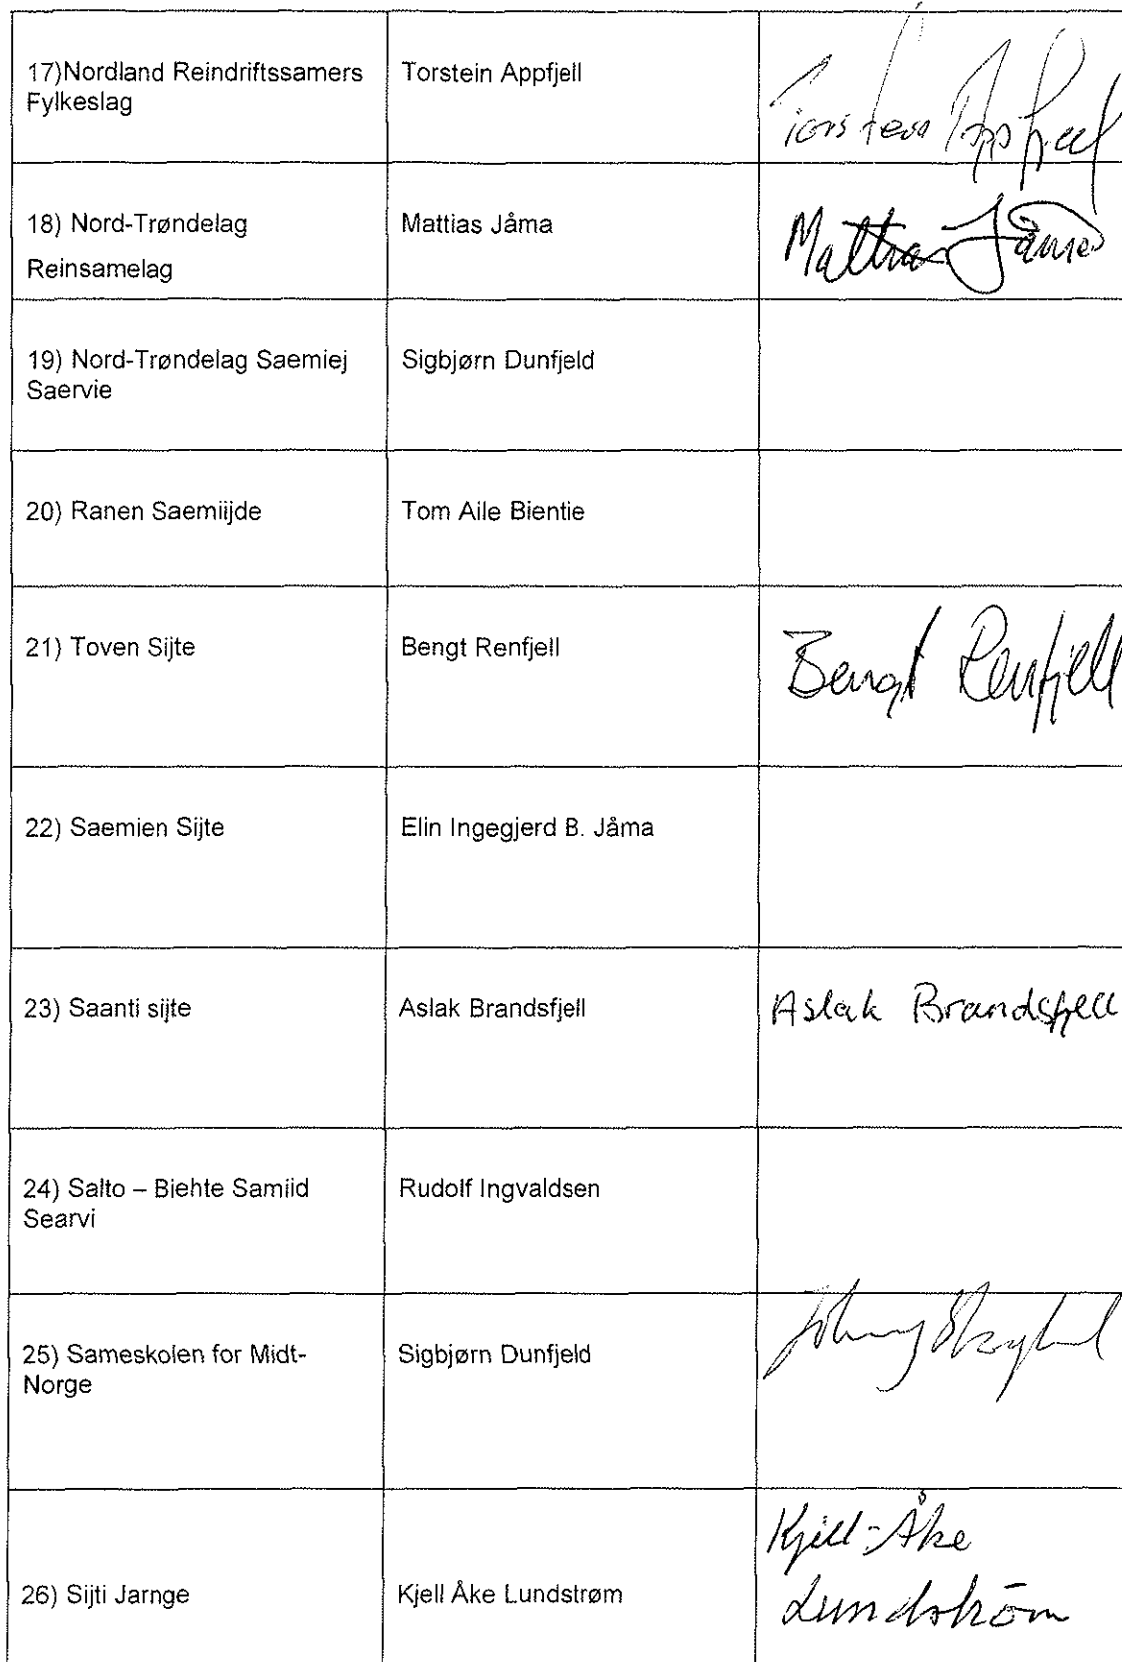 17)Nordland Reindriftssamers
Fylkeslag
Torstein Appfjell
Torstein Appfjell
18) Nord-Trøndelag
Reinsamelag
Mattias Jåma
Mattias Jåma
19) Nord-Trøndelag Saemiej
Saervie
Sigbjørn Dunfjeld
20) Ranen Saemiijde
Tom Aile Bientie
21) Toven Sijte
Bengt Renfjell
Bengt Renfjell
22) Saemien Sijte
Elin Ingegjerd B. Jåma
23) Saanti sijte
Aslak Brandsfjell
Aslak Brandsfjell
24) Salto – Biehte Samiid
Searvi
Rudolf Ingvaldsen
25) Sameskolen for Midt-
Norge
Sigbjørn Dunfjeld
26) Sijti Jarnge
Kjell Åke Lundstrøm
Kjell-Åke
Lundström